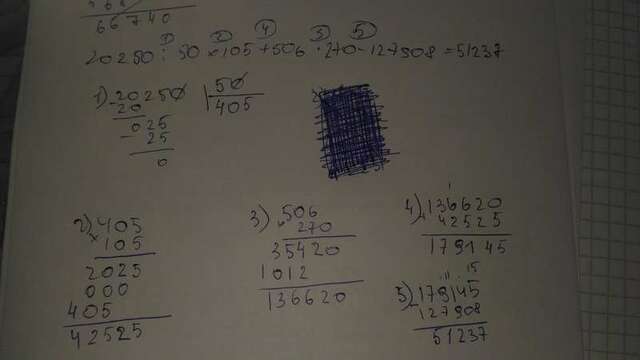 66740
① ② ④ ③ ⑤
20250 : 50 × 105 + 506 · 270 - 127908 = 51237
1) 20250 | 50
- 20 405
025
- 25
0
2) 405
× 105
2025
000
405
42525
3) 506
× 270
35420
1012
136620
1
4) 136620
+ 42525
179145
15
5) 179145
- 127908
51237